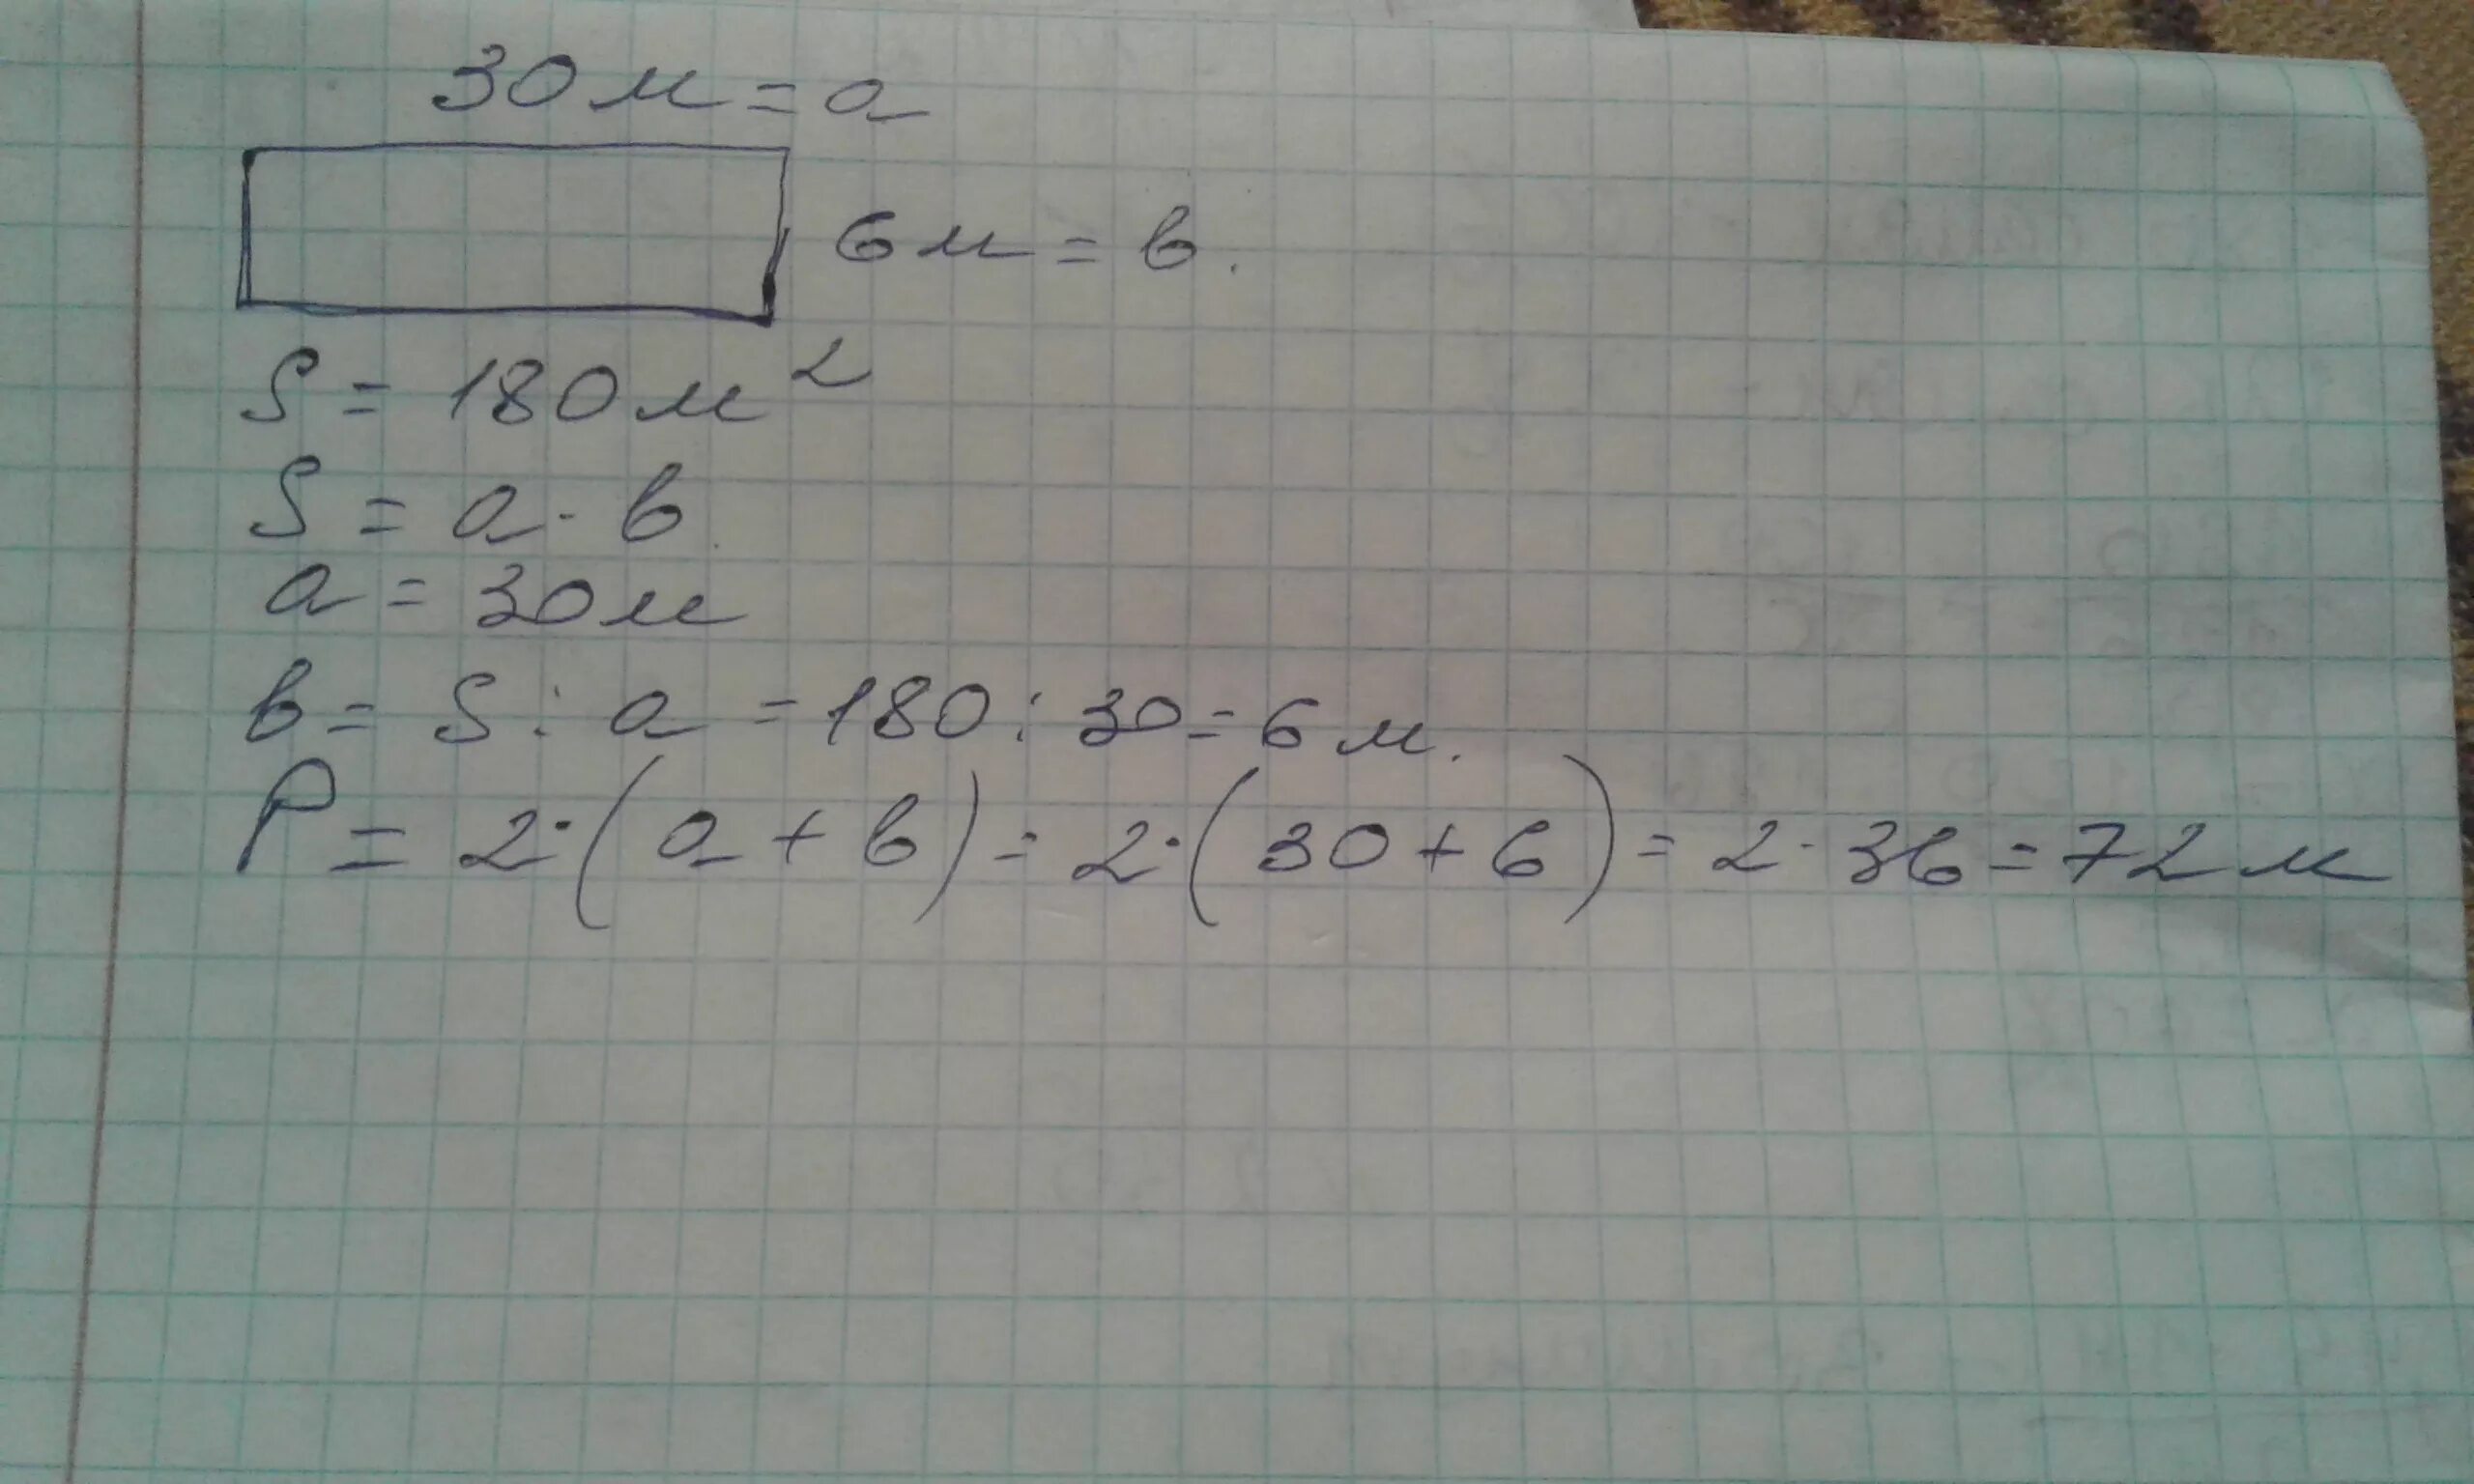 30 м = а
6 м = в.
S = 180 м²
S = а · в
а = 30 м
в = S : а = 180 : 30 = 6 м.
P = 2·(а + в) = 2·(30 + 6) = 2 · 36 = 72 м